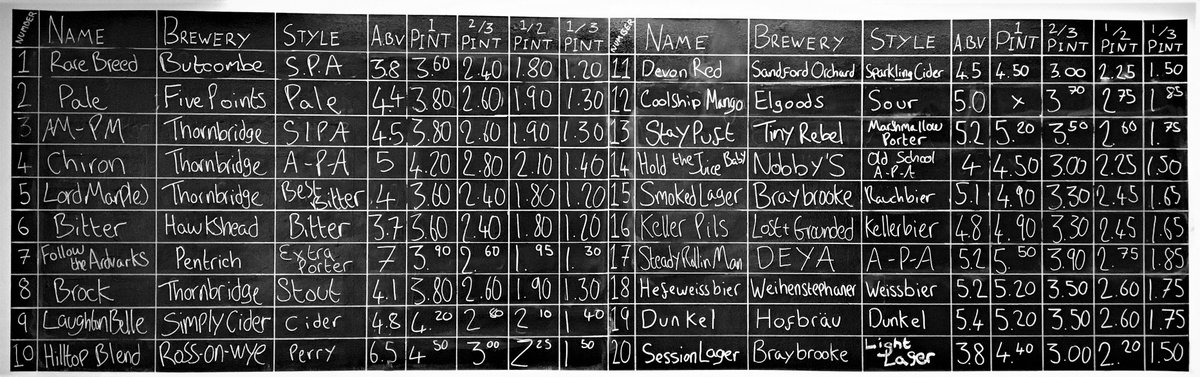 NUMBER NAME BREWERY STYLE A.B.V 1 PINT 2/3 PINT 1/2 PINT 1/3 PINT
1 Rare Breed Butcombe S.P.A 3.8 3.60 2.40 1.80 1.20
2 Pale Five Points Pale 4.4 3.80 2.60 1.90 1.30
3 AM-PM Thornbridge S I P A 4.5 3.80 2.60 1.90 1.30
4 Chiron Thornbridge A-P-A 5 4.20 2.80 2.10 1.40
5 Lord Marples Thornbridge Best Bitter 4 3.60 2.40 1.80 1.20
6 Bitter Hawkshead Bitter 3.7 3.60 2.40 1.80 1.20
7 Follow the Ardvarks Pentrich Extra Porter 7 3.90 2.60 1.95 1.30
8 Brock Thornbridge Stout 4.1 3.80 2.60 1.90 1.30
9 Laughton Belle Simply Cider Cider 4.8 4.20 2.80 2.10 1.40
10 Hilltop Blend Ross-on-wye Perry 6.5 4.50 3.00 2.25 1.50
NUMBER NAME BREWERY STYLE A.B.V 1 PINT 2/3 PINT 1/2 PINT 1/3 PINT
11 Devon Red Sandford Orchard Sparkling Cider 4.5 4.50 3.00 2.25 1.50
12 Coolship Mango Elgoods Sour 5.0 x 3.70 2.75 1.85
13 Stay Puft Tiny Rebel Marshmallow Porter 5.2 5.20 3.50 2.60 1.75
14 Hold the Juice Baby Nobby'S Old School A-P-A 4 4.50 3.00 2.25 1.50
15 Smoked Lager Braybrooke Rauchbier 5.1 4.90 3.30 2.45 1.65
16 Keller Pils Lost + Grounded Kellerbier 4.8 4.90 3.30 2.45 1.65
17 Steady Rollin Man DEYA A-P-A 5.2 5.50 3.90 2.75 1.85
18 Hefeweissbier Weihenstephaner Weissbier 5.2 5.20 3.50 2.60 1.75
19 Dunkel Hofbräu Dunkel 5.4 5.20 3.50 2.60 1.75
20 Session Lager Braybrooke Light Lager 3.8 4.40 3.00 2.20 1.50